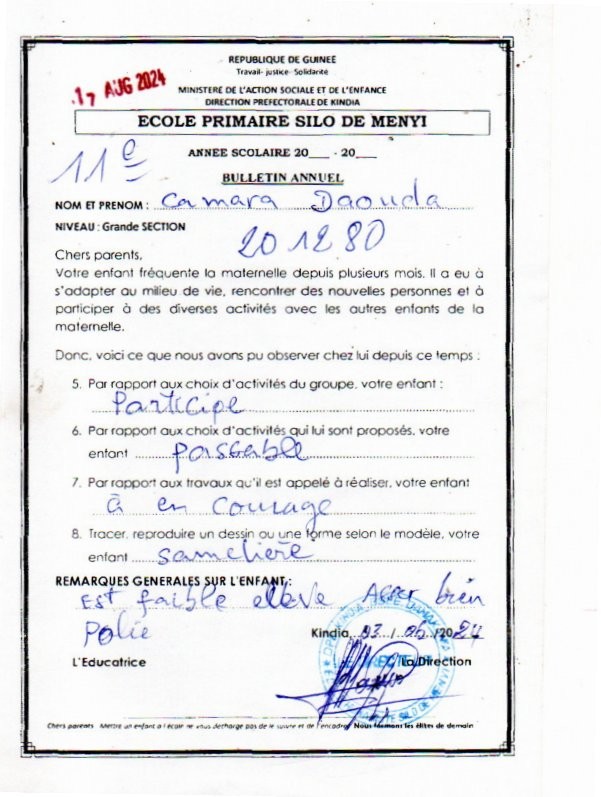 REPUBLIQUE DE GUINEE
Travail- justice- Solidarité
17 AUG 2024
MINISTERE DE L'ACTION SOCIALE ET DE L'ENFANCE
DIRECTION PREFECTORALE DE KINDIA
ECOLE PRIMAIRE SILO DE MENYI
ANNEE SCOLAIRE 20___ -20___
11e
BULLETIN ANNUEL
NOM ET PRENOM : Camara Daouda
NIVEAU : Grande SECTION
201280
Chers parents,
Votre enfant fréquente la maternelle depuis plusieurs mois. Il a eu à
s'adapter au milieu de vie, rencontrer des nouvelles personnes et à
participer à des diverses activités avec les autres enfants de la
maternelle.
Donc, voici ce que nous avons pu observer chez lui depuis ce temps :
5. Par rapport aux choix d'activités du groupe, votre enfant :
Participe
6. Par rapport aux choix d'activités qui lui sont proposés, votre
enfant passable
7. Par rapport aux travaux qu'il est appelé à réaliser, votre enfant
à en courage
8. Tracer, reproduire un dessin ou une forme selon le modèle, votre
enfant sameliere
REMARQUES GENERALES SUR L'ENFANT :
Est faible eleve Asser bien
Polie
Kindia, 03 / 06 /2024
L'Educatrice La Direction
Chers parents Mettre un enfant à l'école ne vous décharge pas de le suivre et de l'encadrer Nous formons les élites de demain